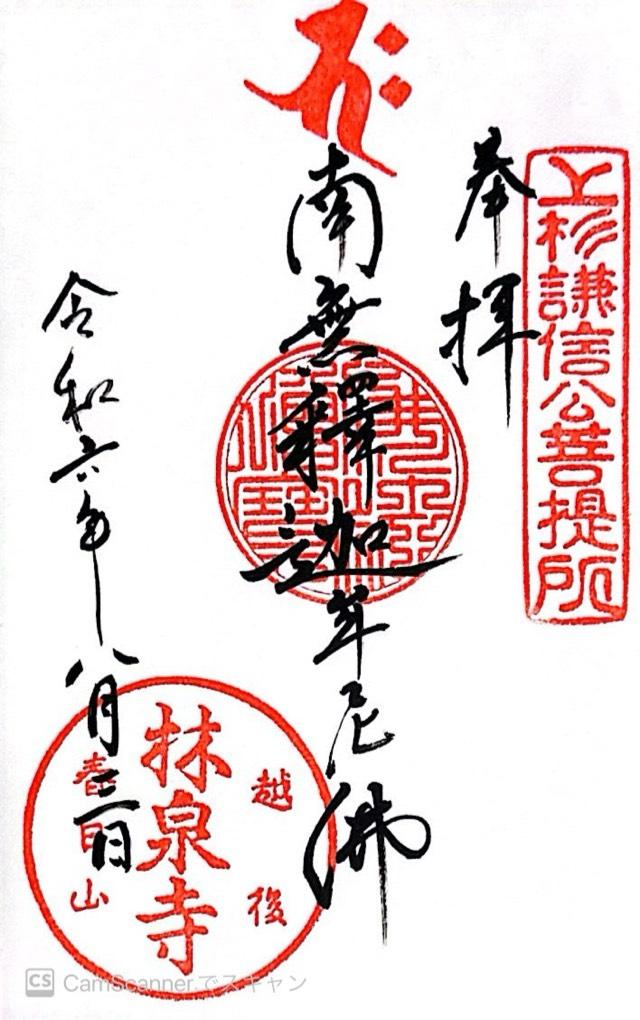 上杉謙信公菩提所
奉拝
南無釋迦牟尼佛
令和六年八月三日
越後
林泉寺
春日山
CS CamScannerでスキャン